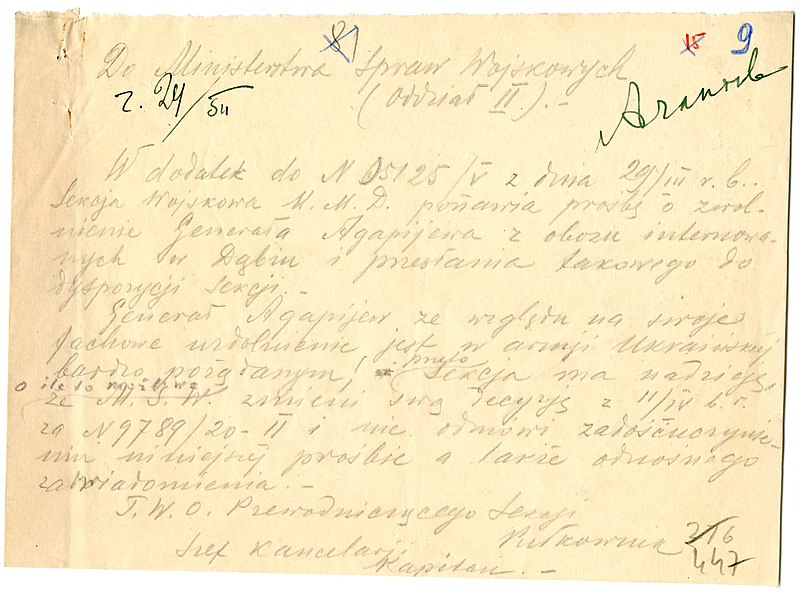 81 15 9
Do Ministerstwa Spraw Wojskowych
(Oddział II). -
W dodatek do N 05125/V z dnia 29/III r. b..
Sekcja Wojskowa U. M. D. ponawia prośbę o zwol-
nienie Generała Agapijewa z obozu internowa-
nych w Dąbiu i przesłania takowego do
dyspozycji Sekcji. -
Generał Agapijew ze względu na swoje
fachowe uzdolnienie jest w armji Ukraińskiej
bardzo pożądanym, przeto Sekcja ma nadzieję,
o ile to możliwe
że M. S. W. zmieni swą decyzję z 11/IV b. r.
za N 9789/20-II i nie odmówi zadośćuczynie-
niu niniejszej prośbie a także odnośnego
zawiadomienia. -
T. W. O. Przewodniczącego Sekcji
Pułkownik
Szef Kancelarji
Kapitan. -
216
447